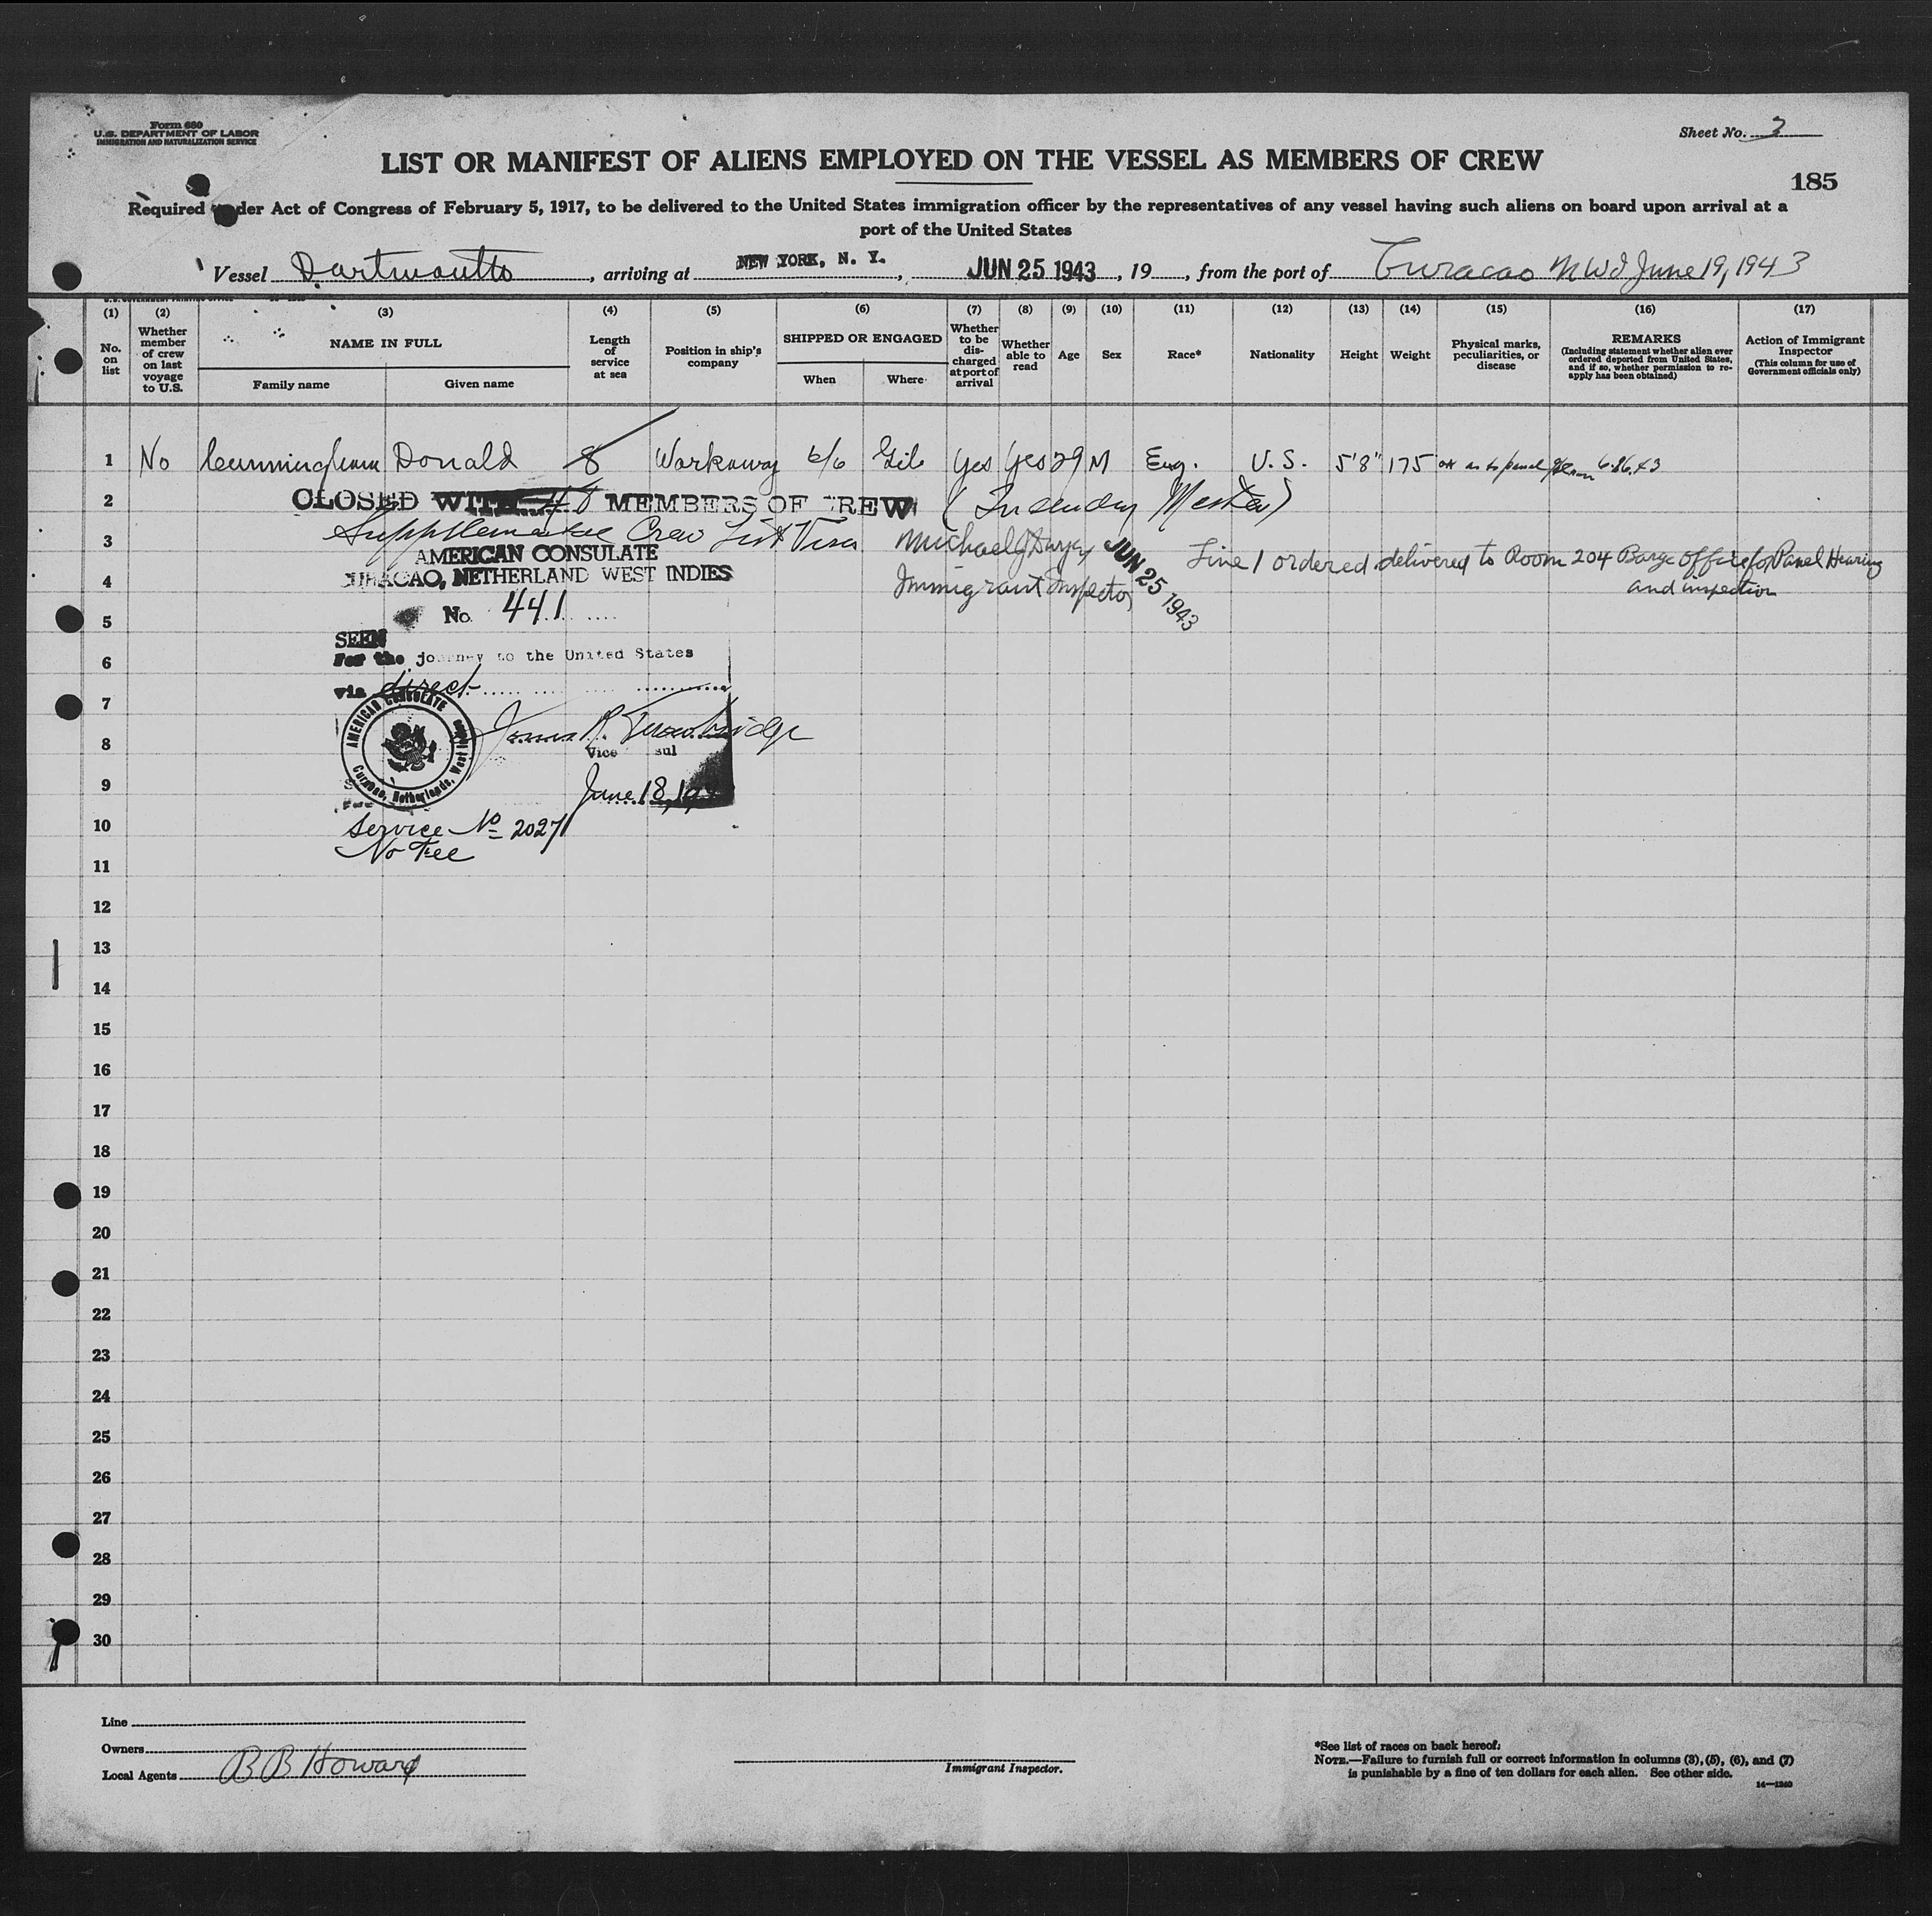 Form 680
U.S. DEPARTMENT OF LABOR
IMMIGRATION AND NATURALIZATION SERVICE
Sheet No.
LIST OR MANIFEST OF ALIENS EMPLOYED ON THE VESSEL AS MEMBERS OF CREW
185
Required under Act of Congress of February 5, 1917, to be delivered to the United States immigration officer by the representatives of any vessel having such aliens on board upon arrival at a
port of the United States
Vessel Dartmouth, arriving at NEW YORK, N. Y., JUN 25 1943, 19, from the port of Curacao NWI June 19, 1943
U.S. GOVERNMENT PRINTING OFFICE
(1) No. on list
(2) Whether member of crew on last voyage to U.S.
(3) NAME IN FULL
Family name Given name
(4) Length of service at sea
(5) Position in ship's company
(6) SHIPPED OR ENGAGED
When Where
(7) Whether to be discharged at port of arrival
(8) Whether able to read
(9) Age
(10) Sex
(11) Race*
(12) Nationality
(13) Height
(14) Weight
(15) Physical marks, peculiarities, or disease
(16) REMARKS
(Including statement whether alien ever ordered deported from United States, and if so, whether permission to re-apply has been obtained)
(17) Action of Immigrant Inspector
(This column for use of Government officials only)
1 No Cunningham Donald 8 Workaway Yes Yes 29 M Eng. U.S. 5'8" 175 6.26.43
2 CLOSED WITH MEMBERS OF CREW (Including Master)
3 Supplemental Crew List Visa Michael JUN 25 1943 Line 1 ordered delivered to Room 204 Barge Office for Panel Hearing
AMERICAN CONSULATE
4 CURACAO, NETHERLAND WEST INDIES Immigrant Inspector and inspection
No. 441
5
SEEN
6 For the journey to the United States
7 via direct
AMERICAN CONSULATE Curacao, Netherlands, West Indies
8 James R. Trowbridge
Vice sul
9 June 18, 19
10 Service No 2027
No Fee
11
12
13
14
15
16
17
18
19
20
21
22
23
24
25
26
27
28
29
30
Line
Owners
Local Agents B B Howard
Immigrant Inspector.
*See list of races on back hereof.
NOTE.—Failure to furnish full or correct information in columns (3), (5), (6), and (7)
is punishable by a fine of ten dollars for each alien. See other side.
14—1240